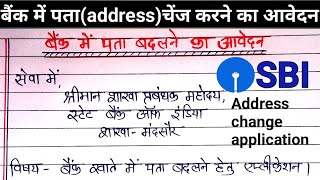 बैंक में पता(address)चेंज करने का आवेदन
बैंक में पता बदलने का आवेदन
सेवा में,
श्रीमान शाखा प्रबंधक महोदय,
स्टेट बैंक ऑफ इंडिया
शाखा- मंदसौर
SBI
Address
change
application
विषय- बैंक खाते में पता बदलने हेतु एप्लीकेशन।